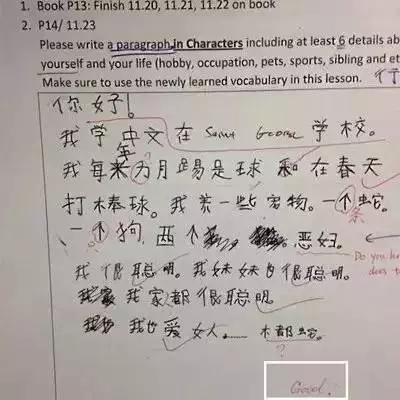 1. Book P13: Finish 11.20, 11.21, 11.22 on book
2. P14/ 11.23
Please write a paragraph in Characters including at least 6 details ab
yourself and your life (hobby, occupation, pets, sports, sibling and et
Make sure to use the newly learned vocabulary in this lesson.
你好!
我学中文在 Saint George 学校。
我每 月踢足球 和 在春天
打棒球。我养一些宠物。一个蛇。
条
一个狗 两个 恶妇。
Do you ha
does t
我很聪明。我妹妹也很聪明。
我家都很聪明。
我也爱女人......
?
Good.